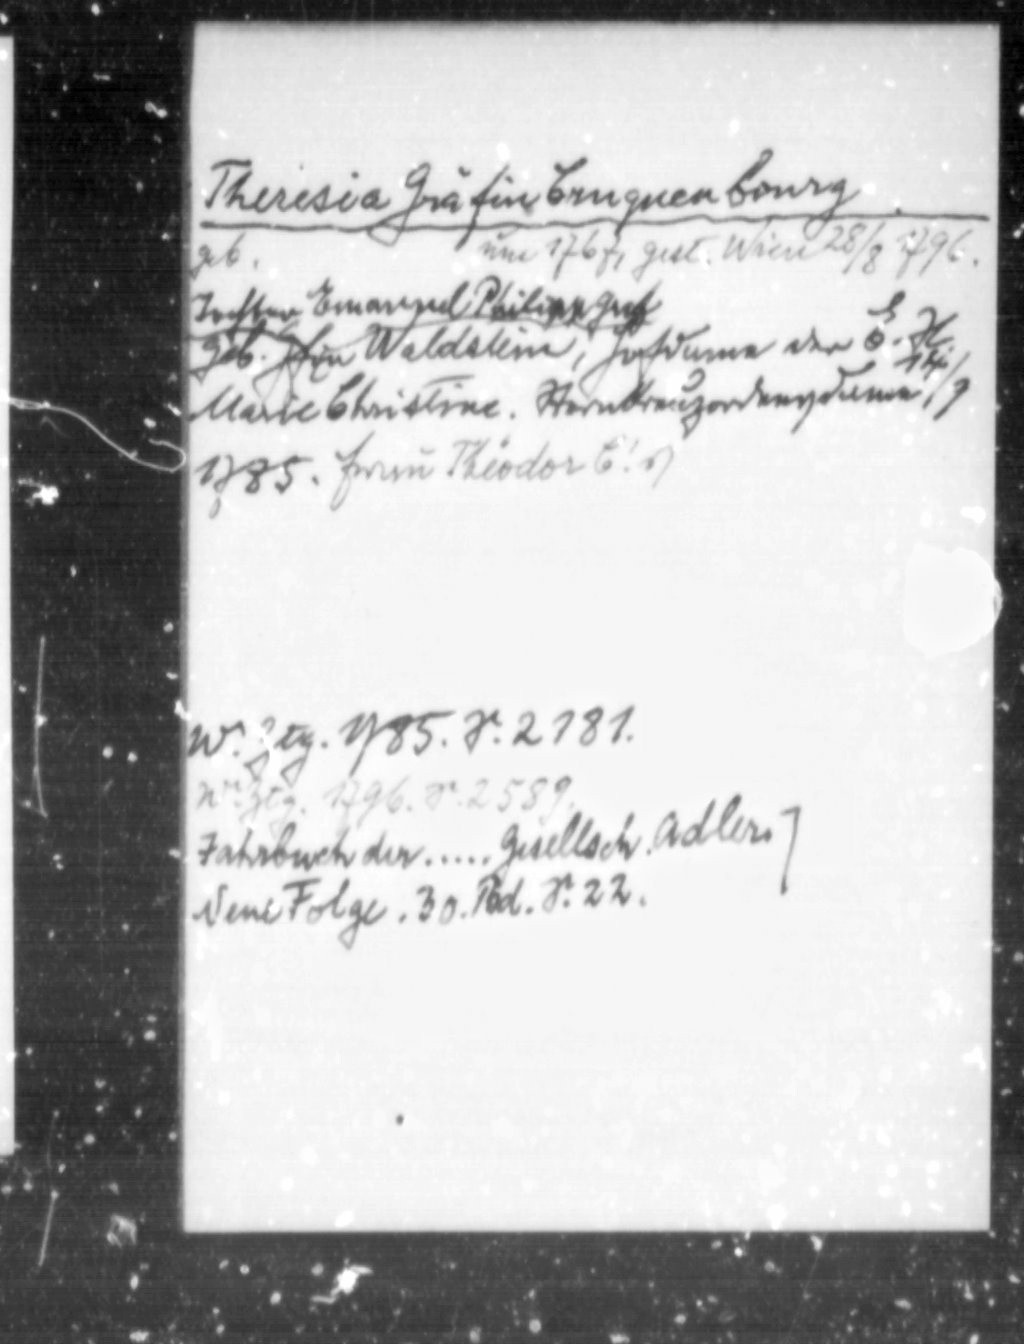 Theresia Gräfin Cruquenbourg
geb. um 1767, gest. Wien 28/8 1796.
Tochter Emanuel Philipp Graf
Geb. Gfin Waldstein, Hofdame der E. H.
Marie Christine. Sternkreuzordensdame 14/9
1785. Frau Theodor C!s
W. Ztg. 1785. S. 2181.
Wr. Ztg. 1796. S. 2559.
Jahrbuch der ..... Gesellsch. Adler.]
Neue Folge. 30. Bd. S. 22.